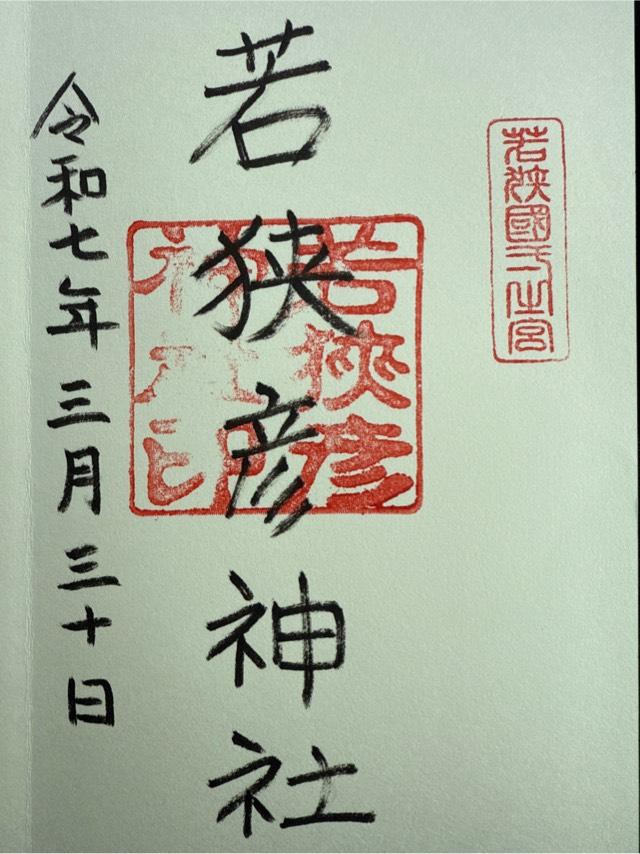 若狹國一之宮
若狹彦
神社印
若狭彦神社
令和七年三月三十日